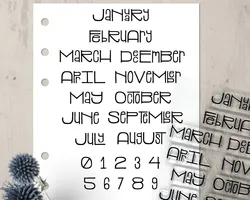 JANUARY
FEBRUARY
MARCH DECEMBER
APRIL NOVEMBER
MAY OCTOBER
JUNE SEPTEMBER
JULY AUGUST
0 1 2 3 4
5 6 7 8 9
MARCH
APRIL
MAY
JUNE
JULY